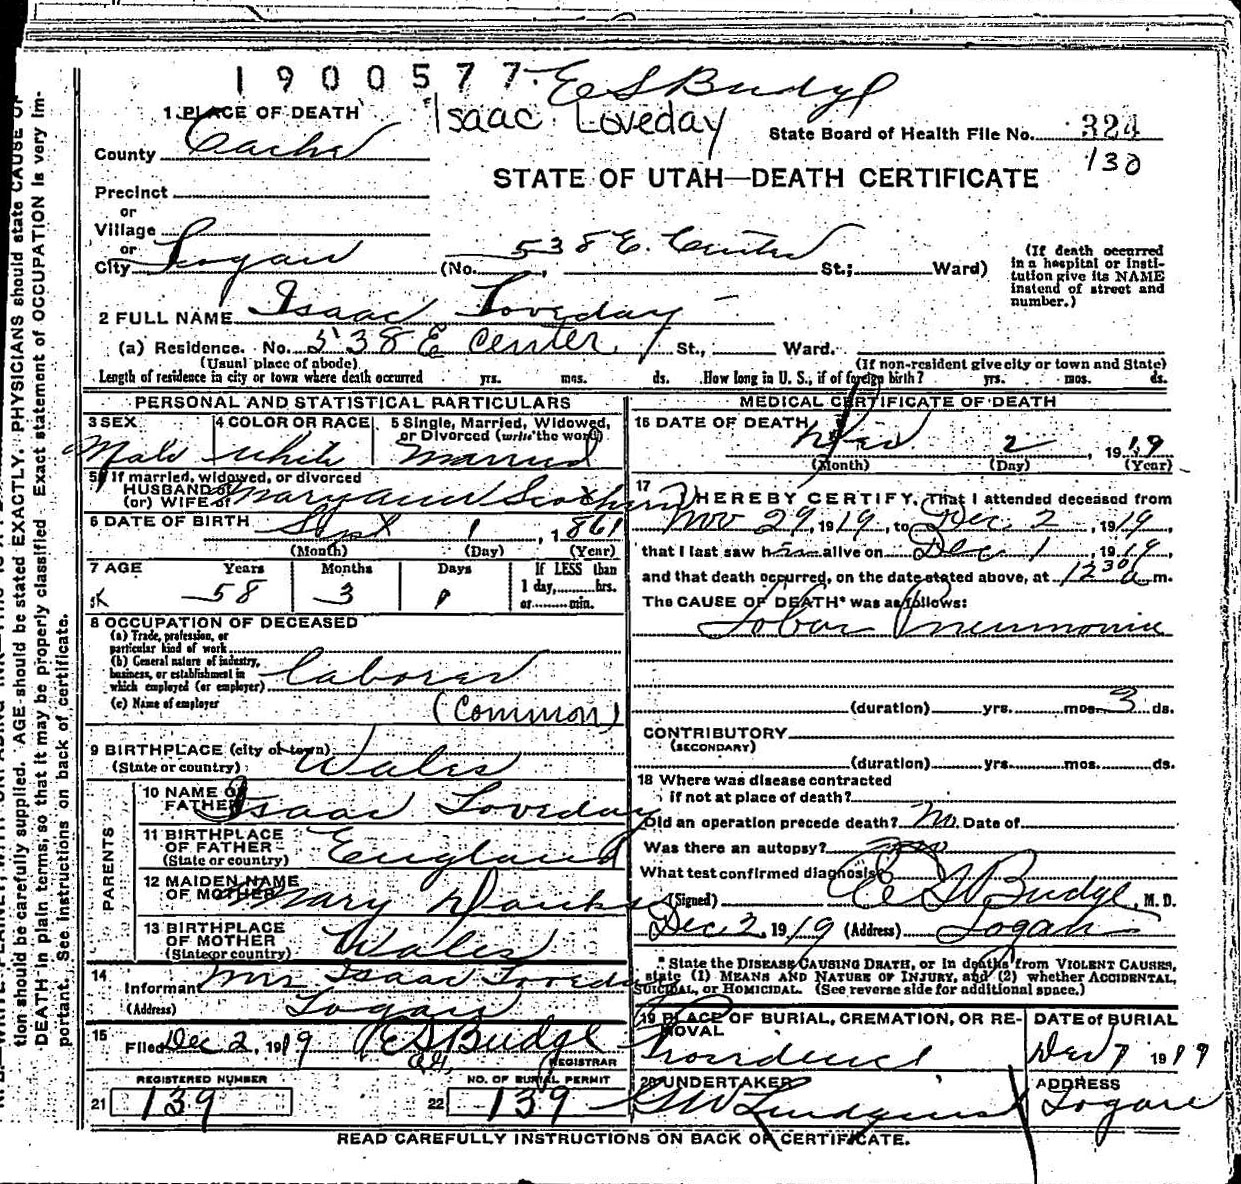 1900577
E S Budge
Isaac Loveday
1 PLACE OF DEATH
State Board of Health File No. 324
130
County Cache
STATE OF UTAH—DEATH CERTIFICATE
Precinct
or
Village
or
City Logan (No. 538 E. Center St.; Ward)
(If death occurred in a hospital or institution give its NAME instead of street and number.)
2 FULL NAME Isaac Loveday
(a) Residence. No. 538 E Center St., Ward.
(Usual place of abode) (If non-resident give city or town and State)
Length of residence in city or town where death occurred yrs. mos. ds. How long in U. S., if of foreign birth? yrs. mos. ds.
PERSONAL AND STATISTICAL PARTICULARS
3 SEX Male
4 COLOR OR RACE White
5 Single, Married, Widowed, or Divorced (write the word) Married
5a If married, widowed, or divorced
HUSBAND of
(or) WIFE of Mary Ann
6 DATE OF BIRTH Sept 1, 1861
(Month) (Day) (Year)
7 AGE Years Months Days If LESS than
58 3 1 day, hrs.
or min.
8 OCCUPATION OF DECEASED
(a) Trade, profession, or particular kind of work
(b) General nature of industry, business, or establishment in which employed (or employer) laborer
(c) Name of employer (Common)
9 BIRTHPLACE (city or town)
(State or country) Wales
PARENTS
10 NAME OF FATHER Isaac Loveday
11 BIRTHPLACE OF FATHER (State or country) England
12 MAIDEN NAME OF MOTHER Mary
13 BIRTHPLACE OF MOTHER (State or country) Wales
14 Informant Mrs Isaac Loveday
(Address) Logan
15 Filed Dec 2, 1919 E S Budge
REGISTRAR
REGISTERED NUMBER NO. OF BURIAL PERMIT
21 139 22 139
MEDICAL CERTIFICATE OF DEATH
16 DATE OF DEATH Dec 2, 1919
(Month) (Day) (Year)
17 I HEREBY CERTIFY, That I attended deceased from
Nov 29, 1919, to Dec. 2, 1919,
that I last saw him alive on Dec 1, 1919
and that death occurred, on the date stated above, at 12 30 a m.
The CAUSE OF DEATH* was as follows:
Lobar Pneumonia
(duration) yrs. mos. 3 ds.
CONTRIBUTORY
(SECONDARY)
(duration) yrs. mos. ds.
18 Where was disease contracted
if not at place of death?
Did an operation precede death? No. Date of
Was there an autopsy? no
What test confirmed diagnosis?
(Signed) E S Budge, M. D.
Dec 2, 1919 (Address) Logan
* State the DISEASE CAUSING DEATH, or in deaths from VIOLENT CAUSES,
state (1) MEANS AND NATURE OF INJURY, and (2) whether ACCIDENTAL,
SUICIDAL, or HOMICIDAL. (See reverse side for additional space.)
19 PLACE OF BURIAL, CREMATION, OR REMOVAL
Providence
DATE of BURIAL
Dec 7 1919
20 UNDERTAKER
G W Lindquist
ADDRESS
Logan
READ CAREFULLY INSTRUCTIONS ON BACK OF CERTIFICATE.
tion should be carefully supplied. AGE should be stated EXACTLY. PHYSICIANS should state CAUSE OF
DEATH in plain terms, so that it may be properly classified. Exact statement of OCCUPATION is very im-
portant. See instructions on back of certificate.